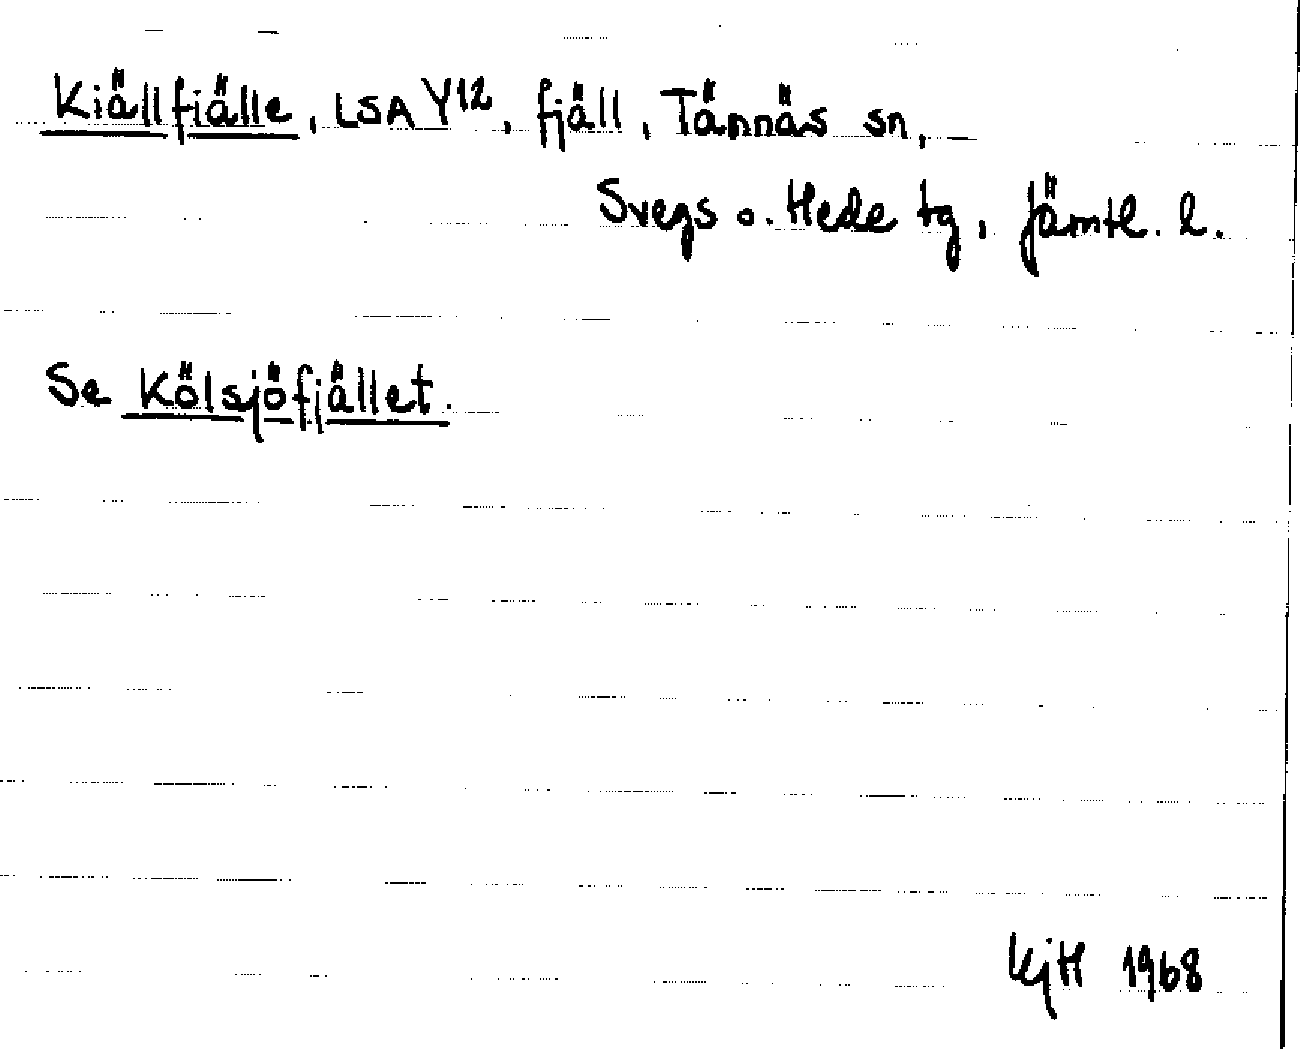 Kiällfiälle, LSA Y12, fjäll, Tännäs sn,
Svegs o. Hede tg, Jämtl. l.
Se Kölsjöfjället.
KjH 1968